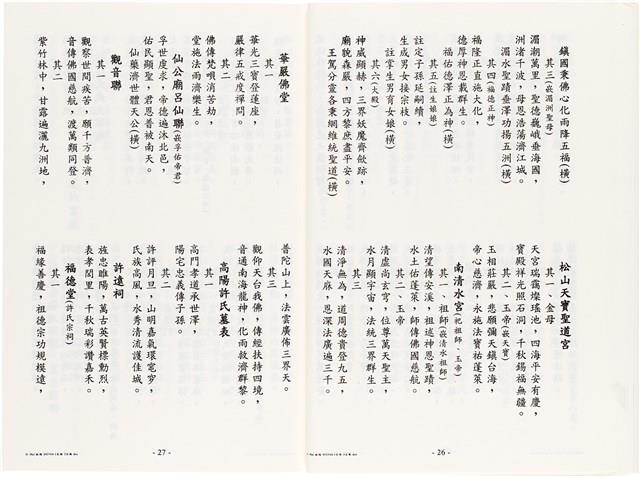 鎮國秉佛心化雨降五福(橫)
其三(嵌湄洲聖母)
湄潮萬里，聖德巍峨垂海國，
洲渚千波，母恩浩蕩濟江城。
湄水聖蹟垂澤功揚五洲(橫)
其四(福德正神)
福隆正直施大化，
德厚神恩載群生。
福佑德澤正為神(橫)
其五(註生娘娘)
註定子孫延嗣續，
生成男女接宗枝。
註掌生男育女娘(橫)
其六(大殿)
神威顯赫，三界妖魔齊斂跡，
廟貌森嚴，四方黎庶盡平安。
王駕分靈各秉綱維統聖道(橫)
松山天寶聖道宮
其一、金母
天宮瑞靄燦瑤池，四海平安有慶，
寶殿祥光照石洞，千秋錫福無疆。
其二、玉帝(嵌天寶)
玉相莊嚴，悲願彌天鎮台海，
帝心慈濟，水施法寶祐蓬萊。
南清水宮(祀祖師、玉帝)
其一、祖師(嵌清水祖師)
清望傳安溪，祖述神恩聖蹟，
水土佑蓬萊，師傳佛國慈航。
其二、玉帝
清虛尚玄穹，位尊萬天聖主，
水月顯宇宙，法統三界群生。
其三
清淨無為，道周德貴登九五，
水國天庥，恩深法廣遍三千。
- 26 -
華嚴佛堂
其一
華光三寶登蓮座，
嚴律五戒度禪門。
其二
佛傳梵唄消苦劫，
堂施法雨濟樂生。
仙公廟呂仙聯(嵌孚佑帝君)
孚世虔求，帝德遍沐北邑，
佑民顯聖，君恩普被南天。
仙藥濟世體天公(橫)
觀音聯
其一
觀察世間疾苦，願千方普濟，
音傳佛國慈航，渡萬類同登。
其二
紫竹林中，甘露遍灑九洲地，
普陀山上，法雲廣佈三界天。
其三
觀仰天台我佛，傳經扶持四境，
音通南海龍神，化雨救濟群黎。
高陽許氏墓表
其一
高門孝道承世澤，
陽宅忠義傳子孫。
其二
許評月旦，山明嘉氣環窀穸，
氏族高風，水秀清流護佳城。
許遠祠
其一
旌忠睢陽，萬古英賢標勳烈，
表孝閭里，千秋瑞彩讚嘉禾。
福德堂(許氏宗祠)
其一
福緣善慶，祖德宗功規模遠，
- 27 -